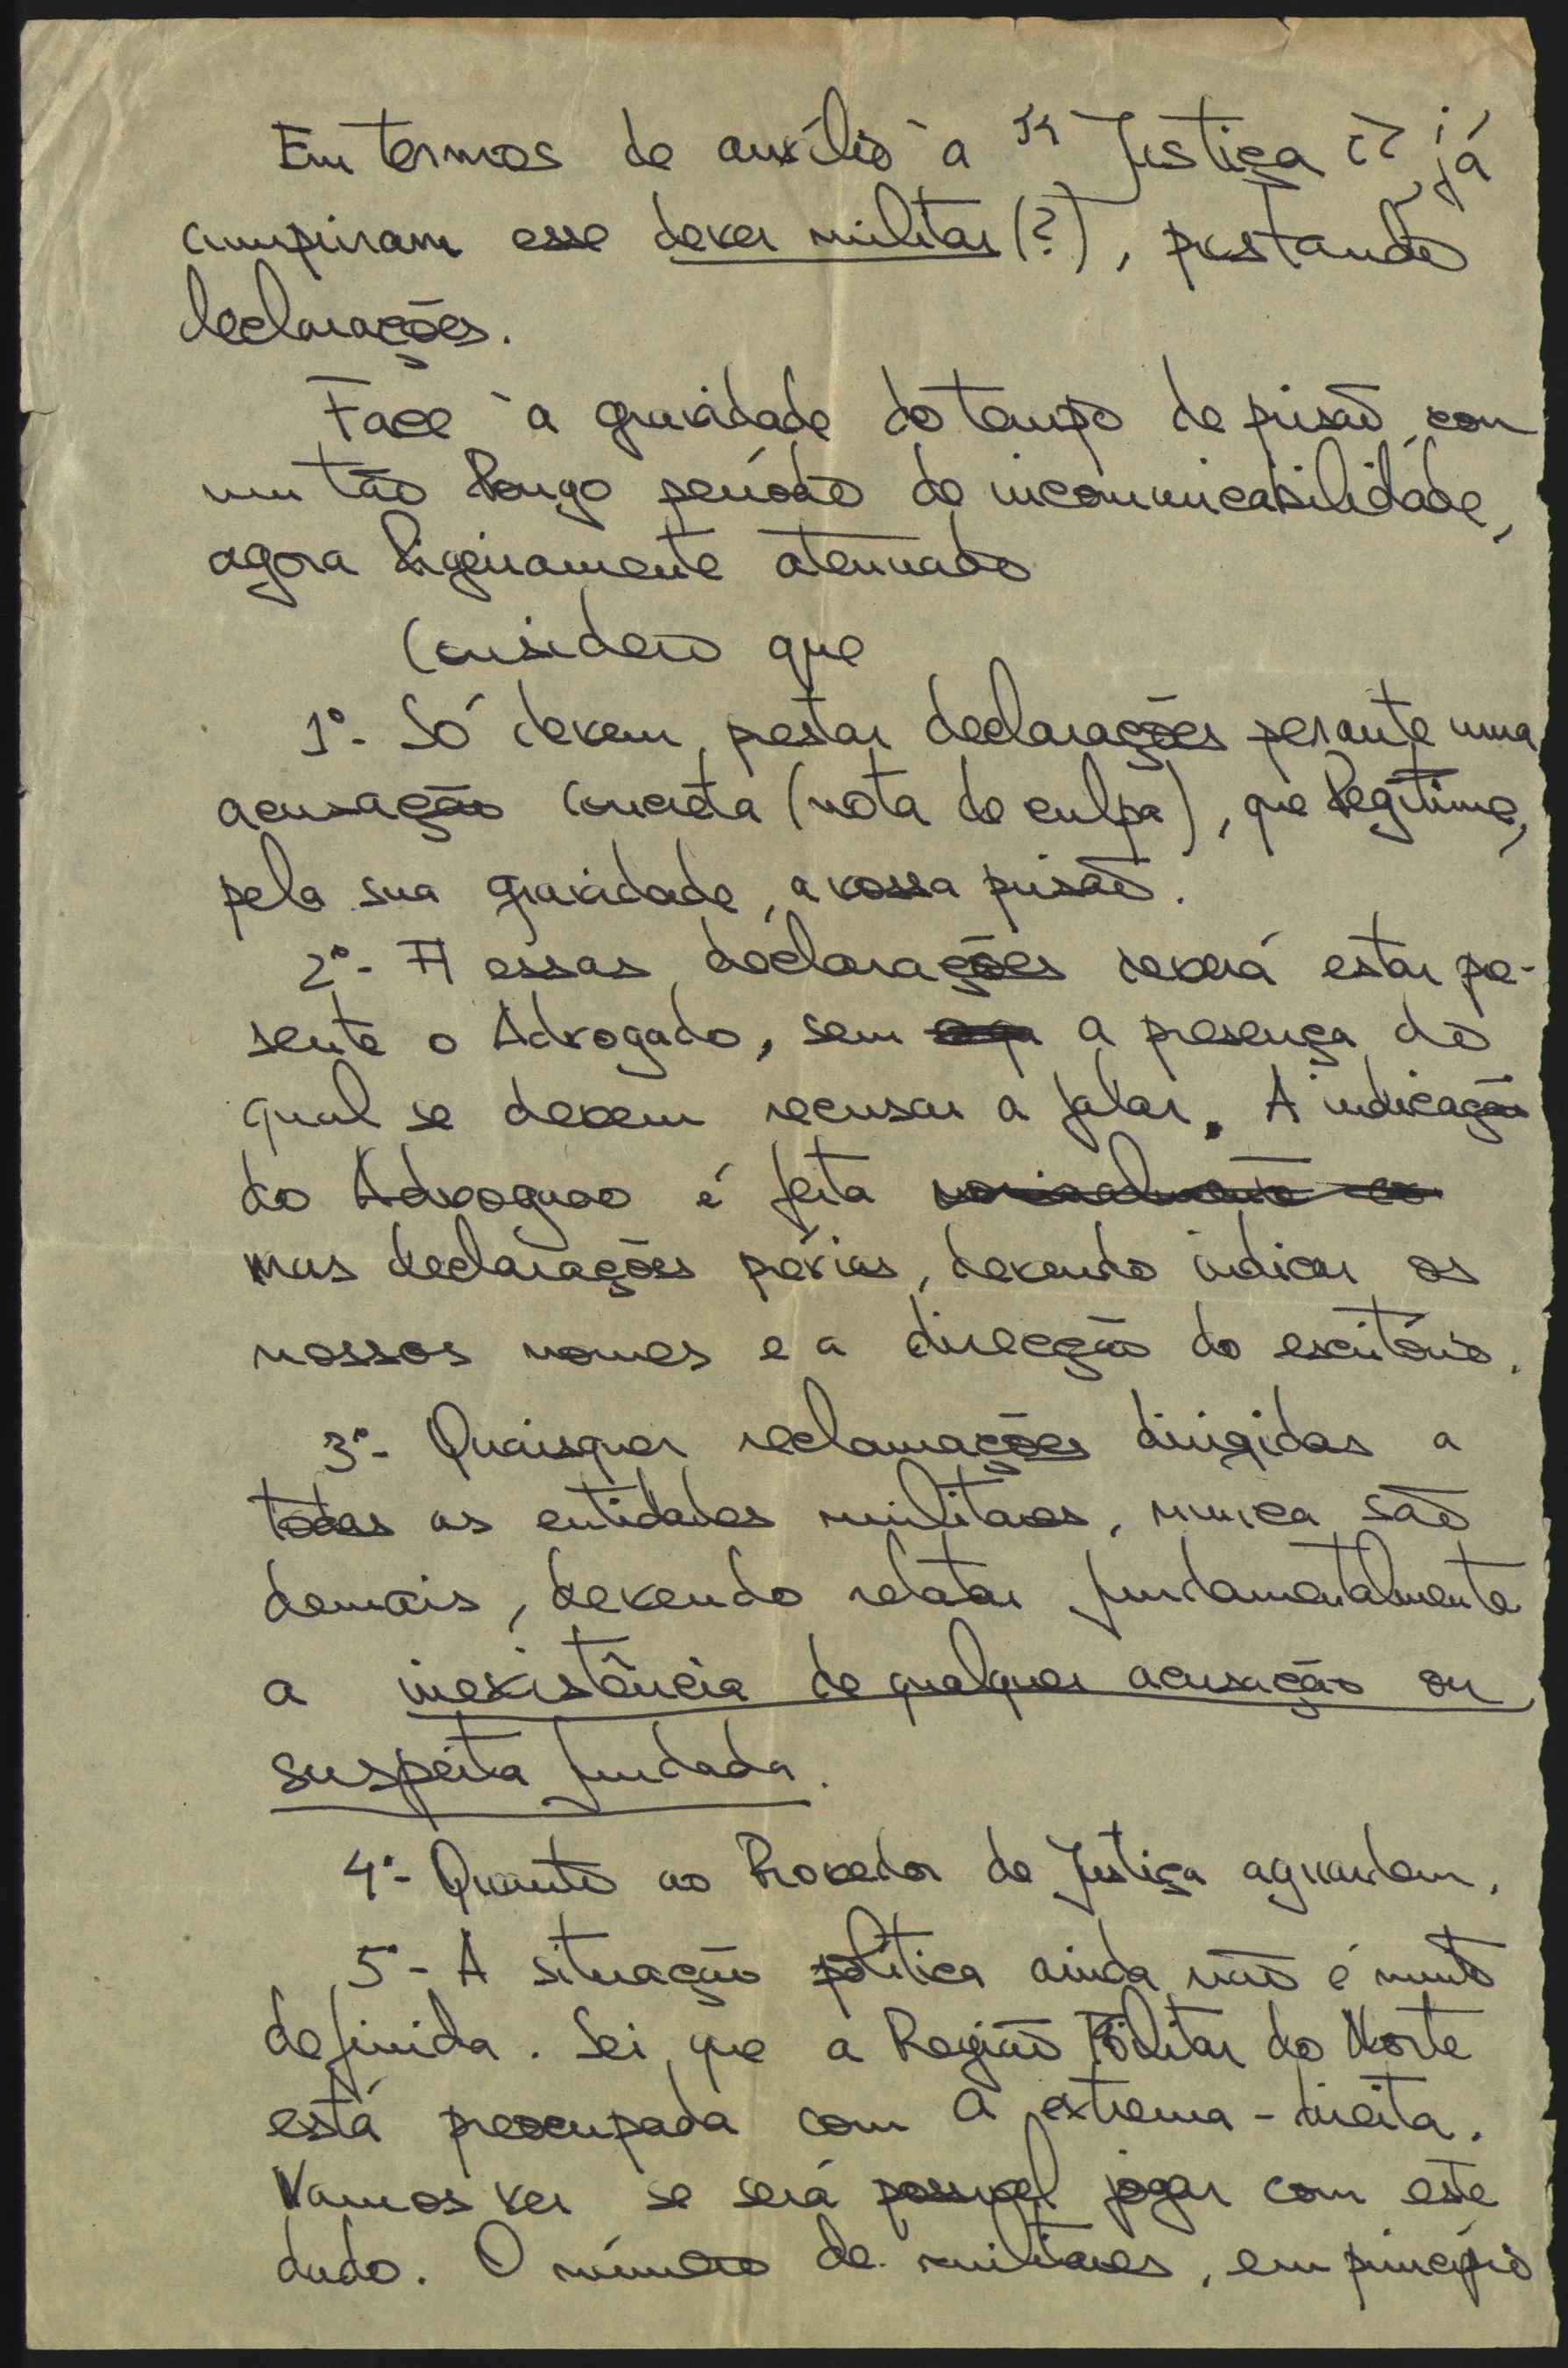 Em termos de auxílio à "Justiça" já
cumpriram esse dever militar (?), prestando
declarações.
Face à gravidade do tempo de prisão, com
um tão longo período de incomunicabilidade,
agora ligeiramente atenuado
Considero que
1º- Só devem prestar declarações perante uma
acusação concreta (nota de culpa), que legitime,
pela sua gravidade, a vossa prisão.
2º- A essas declarações deverá estar pre-
sente o Advogado, sem a presença do
qual se devem recusar a falar. A indicação
do Advogado é feita
nas declarações prévias, devendo indicar os
nossos nomes e a direcção do escritório.
3º- Quaisquer reclamações dirigidas a
todas as entidades militares, nunca são
demais, devendo relatar fundamentalmente
a inexistência de qualquer acusação ou
suspeita fundada.
4º- Quanto ao Provedor de Justiça aguardem.
5º- A situação política ainda não é muito
definida. Sei que a Região Militar do Norte
está preocupada com a extrema-direita.
Vamos ver se será possível jogar com este
dado. O número de militares, em princípio